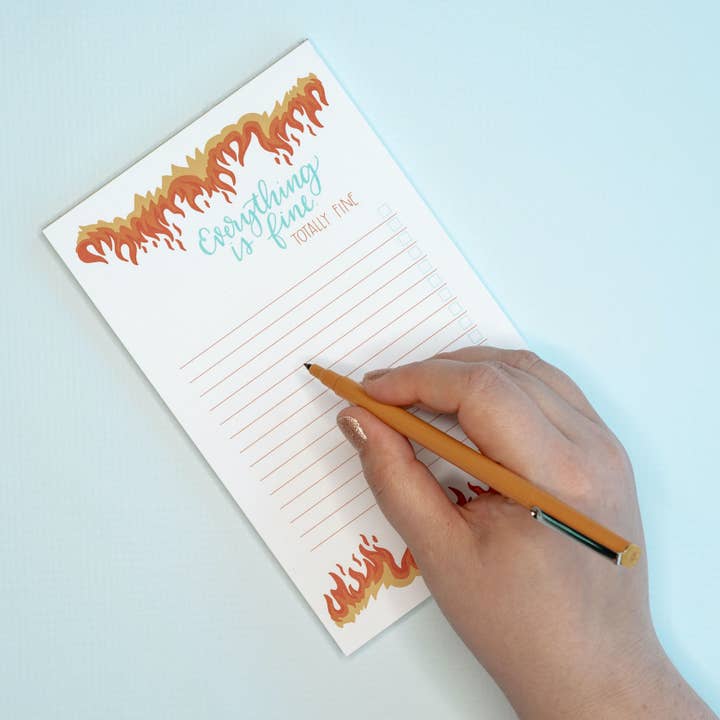 Everything
is fine.
TOTALLY. FINE